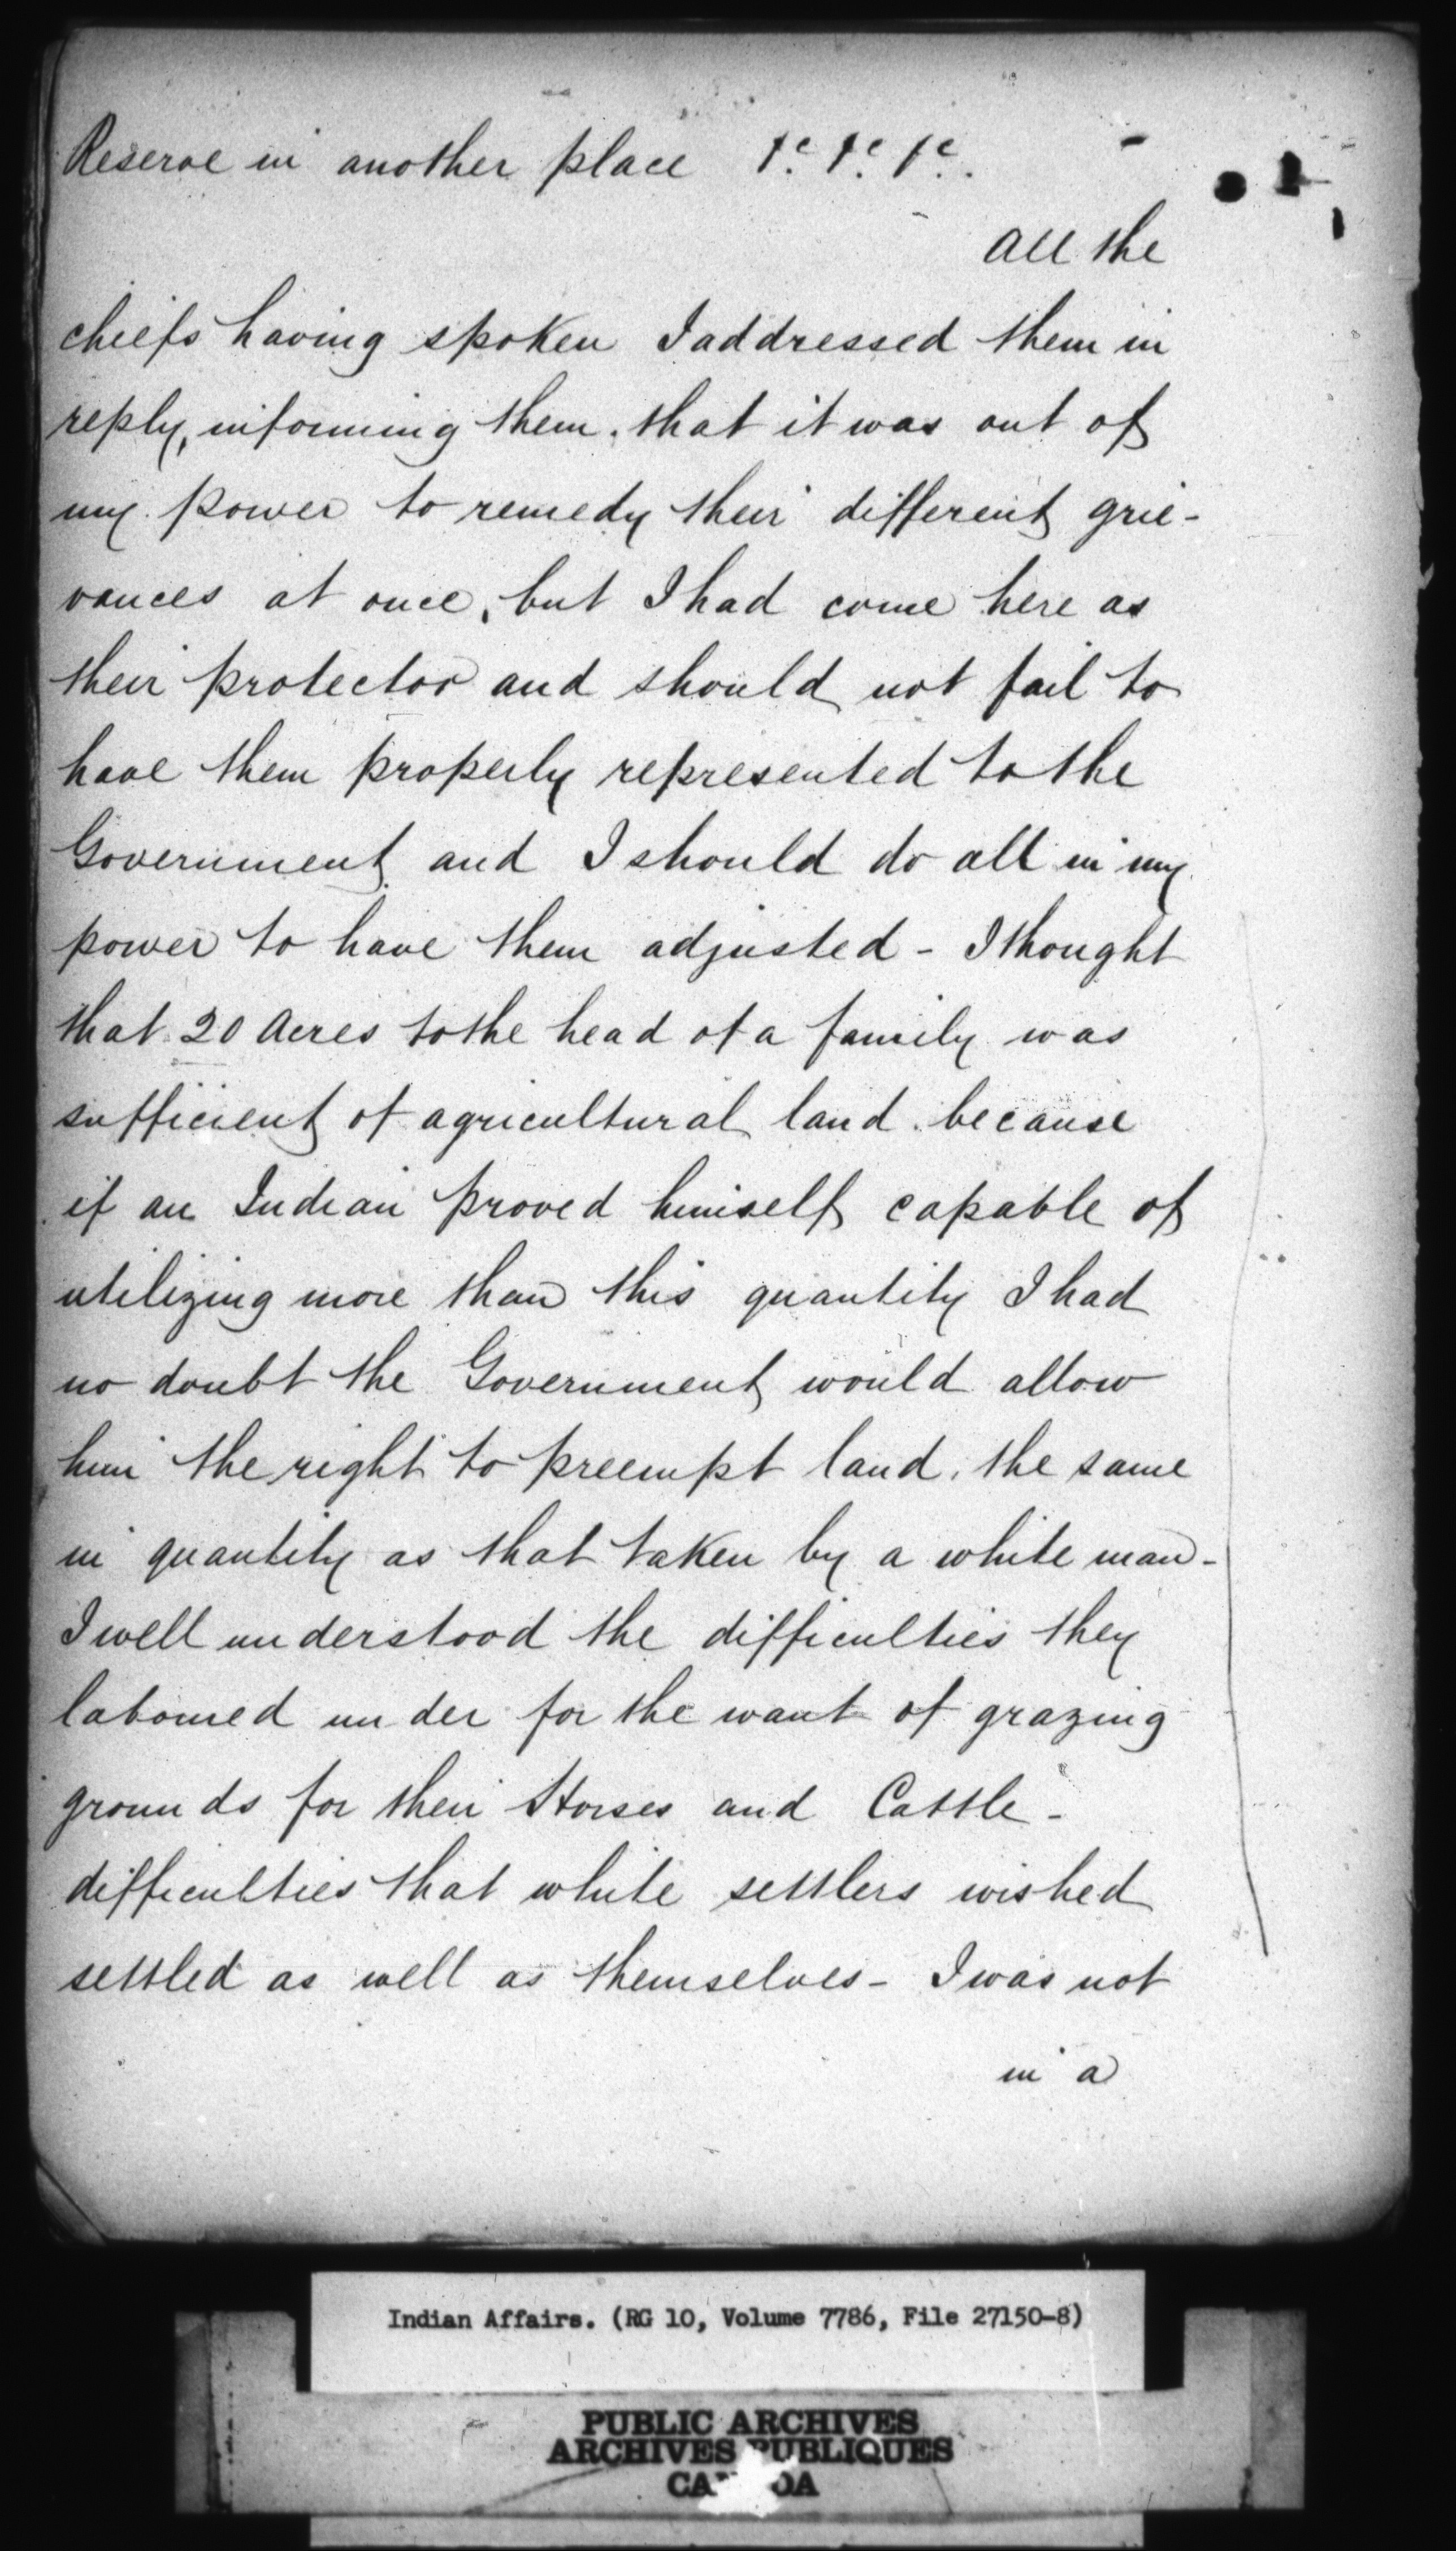 Reserve in another place &c. &c. &c.
All the
chiefs having spoken I addressed them in
reply, informing them, that it was out of
my power to remedy their different grie-
vances at once, but I had come here as
their protector and should not fail to
have them properly represented to the
Government and I should do all in my
power to have them adjusted - I thought
that 20 Acres to the head of a family was
sufficient of agricultural land because
if an Indian proved himself capable of
utilizing more than this quantity I had
no doubt the Government would allow
him the right to preempt land, the same
in quantity as that taken by a white man -
I well understood the difficulties they
laboured under for the want of grazing
grounds for their Horses and Cattle -
difficulties that white settlers wished
settled as well as themselves - I was not
in a
Indian Affairs. (RG 10, Volume 7786, File 27150-8)
PUBLIC ARCHIVES
ARCHIVES PUBLIQUES
CANADA